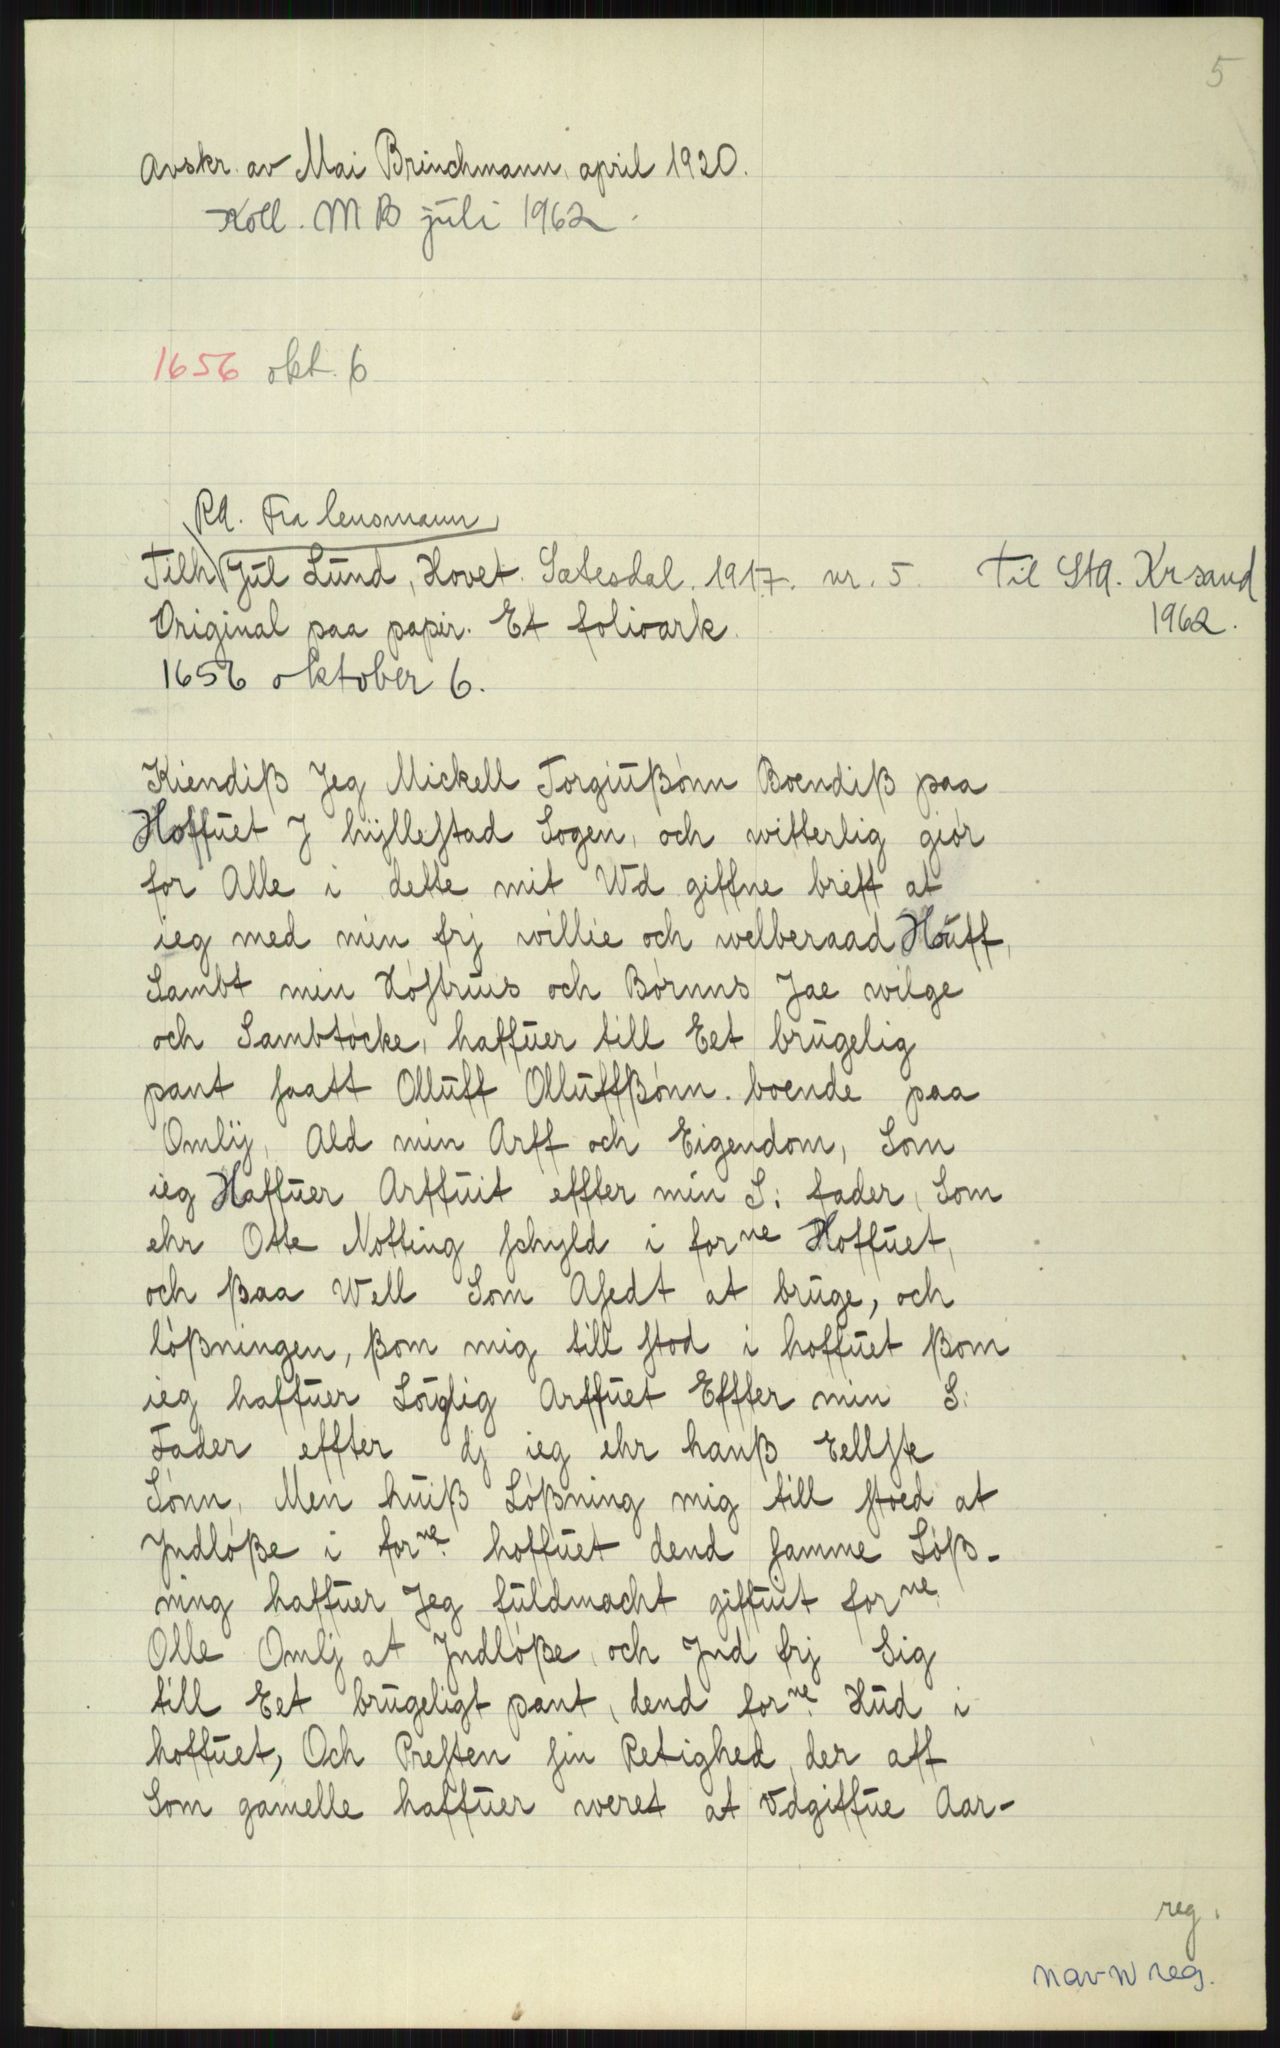 5
Avskr. av Mai Brinchmann, april 1920.
Koll. MB juli 1962.
1656 okt. 6
RA. Fra lensmann
Tilh. Jul Lund, Hovet. Sætesdal. 1917. nr. 5. Til Sta. Kr sand
1962.
Original paa papir. Et folioark.
1656 oktober 6.
Kiendiß Jeg Mickell Torgiußónn Boendiß paa
Hoffuet J hyllestad Sogen, och witterlig giór
for Alle i dette mit Wd giffne breff at
ieg med min frj willie och welberaad Huff,
Sambt min Hóstrus och Bórnns Jae wilge
och Sambtócke, haffuer till Eet brugelig
pant saatt Olluff Olluffßónn. boende paa
Omlij, Ald min Arff och Eigendom, Som
ieg Haffuer Arffuit effter min S: fader, Som
ehr Otte Notting schyld i forne Hoffuet,
och ßaa Well Som Asedt at bruge, och
lóßningen, ßom mig till stod i hoffuet ßom
ieg haffuer Lóglig Arffuet Effter min S:
Fader effter dj ieg ehr hanß Eellste
Sónn, Men huiß Lóßning mig till stoed at
Jndlóße i forne. hoffuet dend samme Lóß-
ning haffuer Jeg fuldmacht giffuit forne.
Olle Omlj at Jndlóße, och Jnd frj Sig
till Eet brugeligt pant, dend forne. Hud i
hoffuet, Och Presten sin Retighed, der aff
Som gamelle haffuer weret at vdgiffue Aar-
reg.
navnreg.